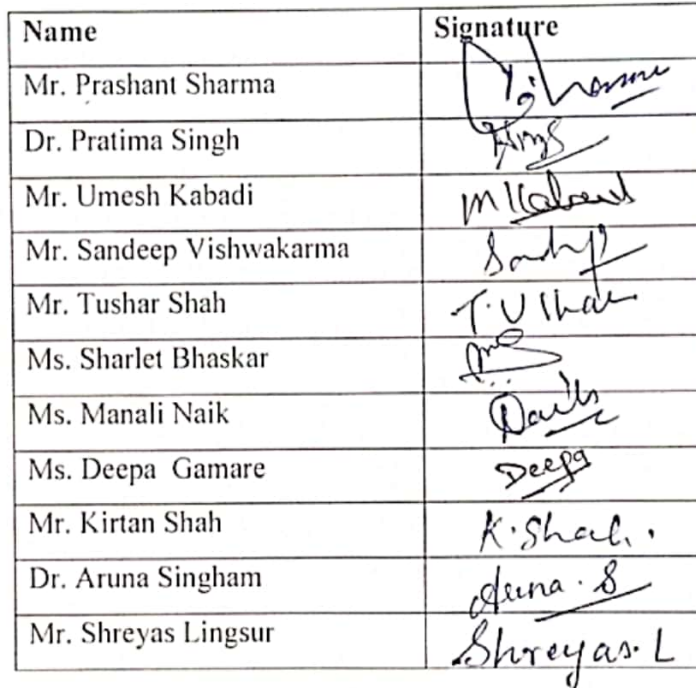 Name Signature
Mr. Prashant Sharma
Dr. Pratima Singh
Mr. Umesh Kabadi
Mr. Sandeep Vishwakarma
Mr. Tushar Shah T. U Shah
Ms. Sharlet Bhaskar
Ms. Manali Naik Naik
Ms. Deepa Gamare Deepa
Mr. Kirtan Shah K. Shah.
Dr. Aruna Singham Aruna. S
Mr. Shreyas Lingsur Shreyas. L